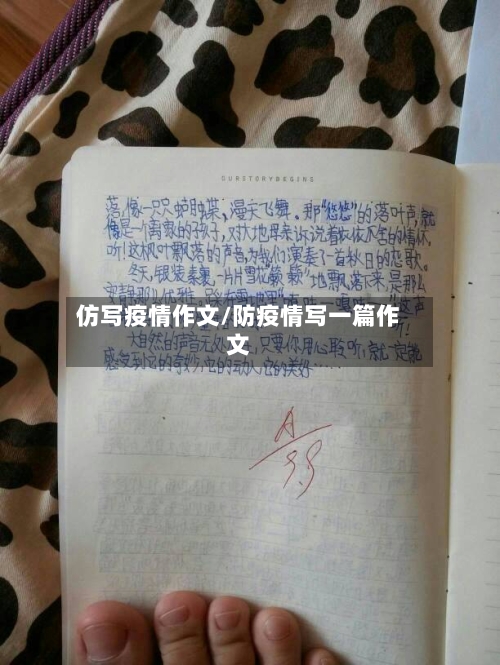 OURSTORYBEGINS
落,像一只只蝴蝶,漫天飞舞。那"悠悠"的落叶声,就
像是大离散的孩子,对大地母亲诉说着依依不舍的情怀,
听!这枫叶飘落的声音,为我们演奏了一首秋日的恋歌。
冬天,银装素裹,一片片雪花"簌簌"地飘落下来,是那么
仿写疫情作文/防疫情写一篇作
文
大自然的声音无处,只要你用心聆听,就一定能
感受到它的奇妙,它的动人,它的美好……
A